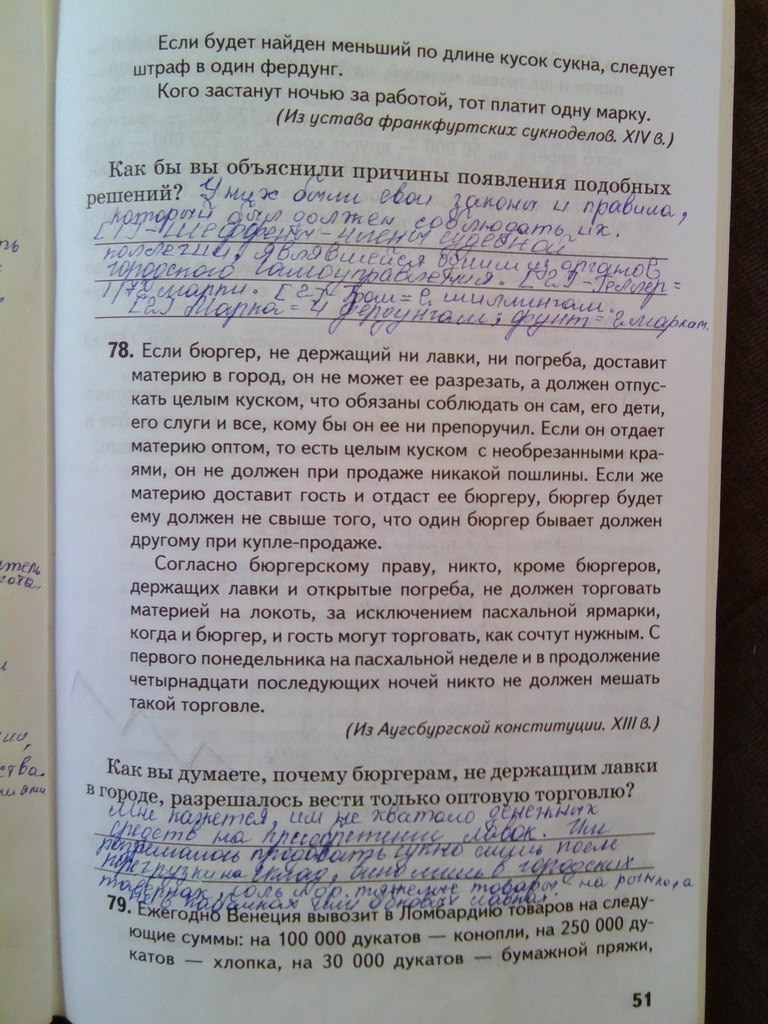 Если будет найден меньший по длине кусок сукна, следует
штраф в один фердунг.
Кого застанут ночью за работой, тот платит одну марку.
(Из устава франкфуртских сукноделов. XIV в.)
Как бы вы объяснили причины появления подобных
решений? У них были свои законы и правила,
который был должен соблюдать их.
[1]-Шеффены-члены судебной
коллегии, являвшейся одним из органов
городского самоуправления. [2]-Геллер=
марки. [2]- =
[2] Марка=4 фердунгам; фунт=2 маркам.
78. Если бюргер, не держащий ни лавки, ни погреба, доставит
материю в город, он не может ее разрезать, а должен отпус-
кать целым куском, что обязаны соблюдать он сам, его дети,
его слуги и все, кому бы он ее ни препоручил. Если он отдает
материю оптом, то есть целым куском с необрезанными кра-
ями, он не должен при продаже никакой пошлины. Если же
материю доставит гость и отдаст ее бюргеру, бюргер будет
ему должен не свыше того, что один бюргер бывает должен
другому при купле-продаже.
Согласно бюргерскому праву, никто, кроме бюргеров,
держащих лавки и открытые погреба, не должен торговать
материей на локоть, за исключением пасхальной ярмарки,
когда и бюргер, и гость могут торговать, как сочтут нужным. С
первого понедельника на пасхальной неделе и в продолжение
четырнадцати последующих ночей никто не должен мешать
такой торговле.
(Из Аугсбургской конституции. XIII в.)
Как вы думаете, почему бюргерам, не держащим лавки
в городе, разрешалось вести только оптовую торговлю?
Мне кажется, им не хватало денежных
средств на приобретение лавок. Им
разрешалось продавать сукно лишь после
перегрузки на склад, вино лишь в городских
тавернах, соль и др. тяжелые товары - на рынке, а
не в
79. Ежегодно Венеция вывозит в Ломбардию товаров на следу-
ющие суммы: на 100 000 дукатов — конопли, на 250 000 ду-
катов — хлопка, на 30 000 дукатов — бумажной пряжи,
51